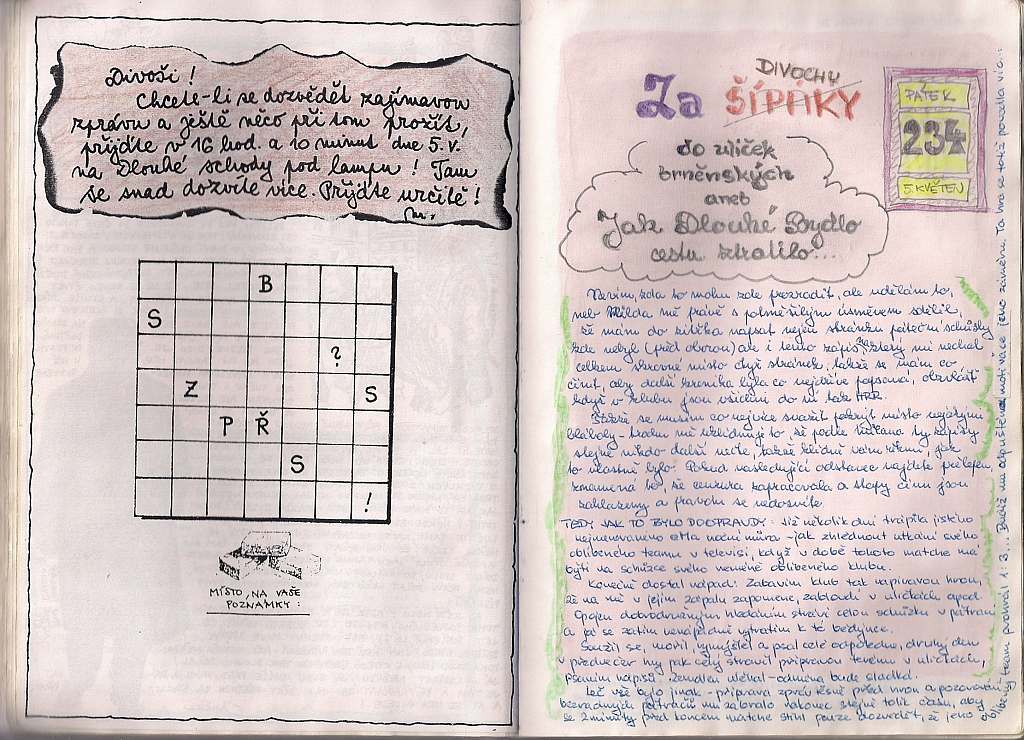 Divoši!
Chcete-li se dozvědět zajímavou
zprávu a ještě něco při tom prožít,
přijďte v 16 hod. a 10 minut dne 5. V.
na Dlouhé schody pod lampu! Tam
se snad dozvíte více. Přijďte určitě!
B
S
?
Z S
P Ř
S
!
MÍSTO NA VAŠE
POZNÁMKY:
DIVOCHY
Za ŠÍPÁKY
do uliček
brněnských
aneb
Jak Dlouhé Bydlo
cestu ztratilo...
PÁTEK
234
5. KVĚTEN
Nevím zda to mohu zde prozradit, ale udělám to,
neb Hilda mě právě s potměšilým úsměvem sdělil,
že mám do zítřka napsat nejen stránku páteční schůzky
kde nebyl (před oborou) ale i tento zápis, ze který mi nechal
celkem skrovné místo čtyř stránek, takže se mám co
činit, aby další kronika byla co nejdříve popsaná, obzvlášť
když v klubu jsou všichni do ní tak HRR.
se musím co nejvíce snažit pokrýt místo nejakými
bláboly - trochu mě uklidňuje to, že podle
stejně nikdo další nečte, takže klidně vám řeknu, jak
to vlastně bylo. Pokud následující odstavec najdete přelepen,
znamená to, že cenzura zapracovala a stopy činu jsou
zahlazeny a pravdu se nedozvíte.
TEDY JAK TO BYLO DOOPRAVDY: Již několik dní trápila jistého
nejmenovaného noční můra - jak zhlédnout utkání svého
oblíbeného teamu v televisi, když v době tohoto matche má
býti na schůzce svého neméně oblíbeného klubu.
Konečně dostal nápad: Zabavím klub tak napínavou hrou,
že na mě v jejím zápalu zapomene, zabloudí v uličkách apod.
Opojen dobrodružným hledáním stráví celou schůzku v pátrání
a já se zatím nenápadně vytratím k té bedýnce.
Soužil se, mořil, vymýšlel a psal celé odpoledne, druhý den
v předvečer hry pak celý strávil přípravou terénu v uličkách,
psaním nápisů. Zemdlen ulehal - odměna bude sladká.
Leč vše bylo jinak - příprava zpráv těsně před hrou a pozorování
bezradných pátračů mu zabralo nakonec stejně tolik času, aby
se 2 minuty před koncem matche stihl pouze dozvědět, že jeho
oblíbený team prohrál 1:3... Budiž mu odpuštěna motivace jeho záměru. Ta hra se totiž povedla víc...